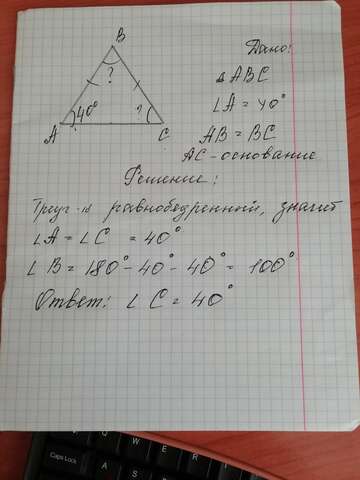 B
Дано:
?
△ABC
40°
?
∠A = 40°
A
C
AB = BC
AC - основание
Решение:
Треуг-ик равнобедренный, значит
∠A = ∠C = 40°
∠B = 180° - 40° - 40° = 100°
Ответ: ∠C = 40°
Caps Lock
A
S
W
E
R